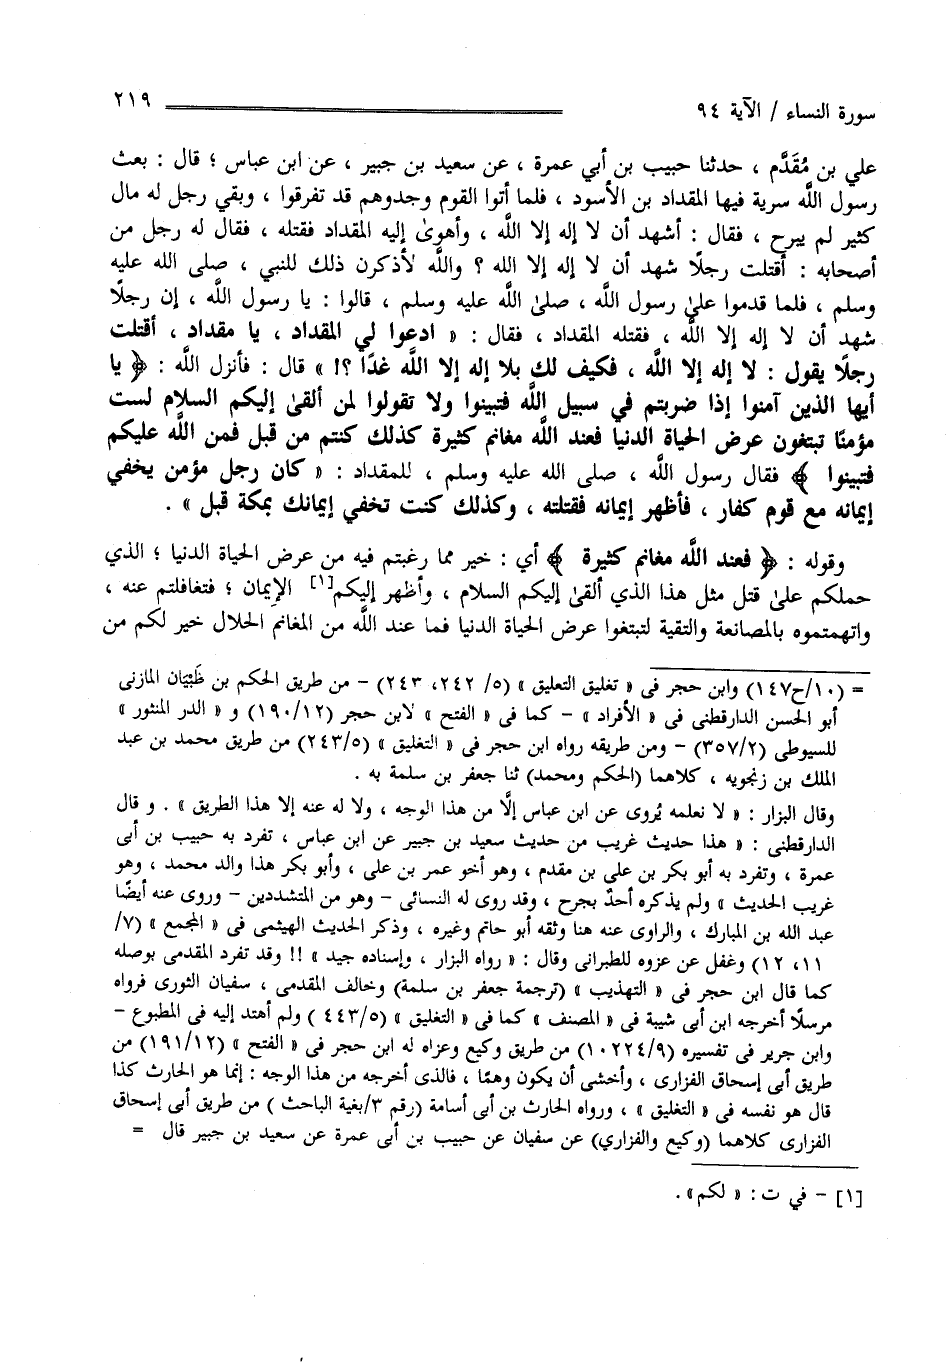 سورة النساء / الآية ٩٤ ٢١٩
علي بن مُقَدَّم ، حدثنا حبيب بن أبي عمرة ، عن سعيد بن جبير ، عن ابن عباس ؛ قال : بعث
رسول اللَّه سرية فيها المقداد بن الأسود ، فلما أتوا القوم وجدوهم قد تفرقوا ، وبقي رجل له مال
كثير لم يبرح ، فقال : أشهد أن لا إله إلا اللَّه ، وأهوىٰ إليه المقداد فقتله ، فقال له رجل من
أصحابه : أقتلت رجلًا شهد أن لا إله إلا الله ؟ واللَّه لأذكرن ذلك للنبي ، صلى الله عليه
وسلم ، فلما قدموا علىٰ رسول اللَّه ، صلىٰ اللَّه عليه وسلم ، قالوا : يا رسول اللَّه ، إن رجلًا
شهد أن لا إله إلا اللَّه ، فقتله المقداد ، فقال : « ادعوا لي المقداد ، يا مقداد ، أقتلت
رجلًا يقول : لا إله إلا اللَّه ، فكيف لك بلا إله إلا اللَّه غدًا ؟! » قال : فأنزل اللَّه : ﴿ يا
أيها الذين آمنوا إذا ضربتم في سبيل اللَّه فتبينوا ولا تقولوا لمن ألقىٰ إليكم السلام لست
مؤمنًا تبتغون عرض الحياة الدنيا فعند اللَّه مغانم كثيرة كذلك كنتم من قبل فمن اللَّه عليكم
فتبينوا ﴾ فقال رسول اللَّه ، صلى الله عليه وسلم ، للمقداد : « كان رجل مؤمن يخفي
إيمانه مع قوم كفار ، فأظهر إيمانه فقتلته ، وكذلك كنت تخفي إيمانك بمكة قبل » .
وقوله : ﴿ فعند اللَّه مغانم كثيرة ﴾ أي : خير مما رغبتم فيه من عرض الحياة الدنيا ؛ الذي
حملكم علىٰ قتل مثل هذا الذي ألقىٰ إليكم السلام ، وأظهر إليكم[١] الإيمان ؛ فتغافلتم عنه ،
واتهمتموه بالمصانعة والتقية لتبتغوا عرض الحياة الدنيا فما عند اللَّه من المغانم الحلال خير لكم من
= (١٠/ح١٤٧) وابن حجر فى « تغليق التعليق » (٥/ ٢٤٢، ٢٤٣) - من طريق الحكم بن ظَبْيَان المازنى
أبو الحسن الدارقطنى فى « الأفراد » - كما فى « الفتح » لابن حجر (١٩٠/١٢) و « الدر المنثور »
للسيوطى (٣٥٧/٢) - ومن طريقه رواه ابن حجر فى « التغليق » (٢٤٣/٥) من طريق محمد بن عبد
الملك بن زنجويه ، كلاهما (الحكم ومحمد) ثنا جعفر بن سلمة به .
وقال البزار : « لا نعلمه يُروى عن ابن عباس إلَّا من هذا الوجه ، ولا له عنه إلا هذا الطريق » . و قال
الدارقطنى : « هذا حديث غريب من حديث سعيد بن جبير عن ابن عباس ، تفرد به حبيب بن أبى
عمرة ، وتفرد به أبو بكر بن على بن مقدم ، وهو أخو عمر بن على ، وأبو بكر هذا والد محمد ، وهو
غريب الحديث » ولم يذكره أحدٌ بجرح ، وقد روى له النسائى - وهو من المتشددين - وروى عنه أيضًا
عبد الله بن المبارك ، والراوى عنه هنا وثقه أبو حاتم وغيره ، وذكر الحديث الهيثمى فى « المجمع » (٧/
١١، ١٢) وغفل عن عزوه للطبرانى وقال : « رواه البزار ، وإسناده جيد » !! وقد تفرد المقدمى بوصله
كما قال ابن حجر فى « التهذيب » (ترجمة جعفر بن سلمة) وخالف المقدمى ، سفيان الثورى فرواه
مرسلًا أخرجه ابن أبى شيبة فى « المصنف » كما فى « التغليق » (٤٤٣/٥) ولم أهتد إليه فى المطبوع -
وابن جرير فى تفسيره (١٠٢٢٤/٩) من طريق وكيع وعزاه له ابن حجر فى « الفتح » (١٩١/١٢) من
طريق أبى إسحاق الفزارى ، وأخشى أن يكون وهمًا ، فالذى أخرجه من هذا الوجه : إنما هو الحارث كذا
قال هو نفسه فى « التغليق » ، ورواه الحارث بن أبى أسامة (رقم ٣/بغية الباحث ) من طريق أبى إسحاق
الفزارى كلاهما (وكيع والفزاري) عن سفيان عن حبيب بن أبى عمرة عن سعيد بن جبير قال =
[١] - في ت : « لكم» .